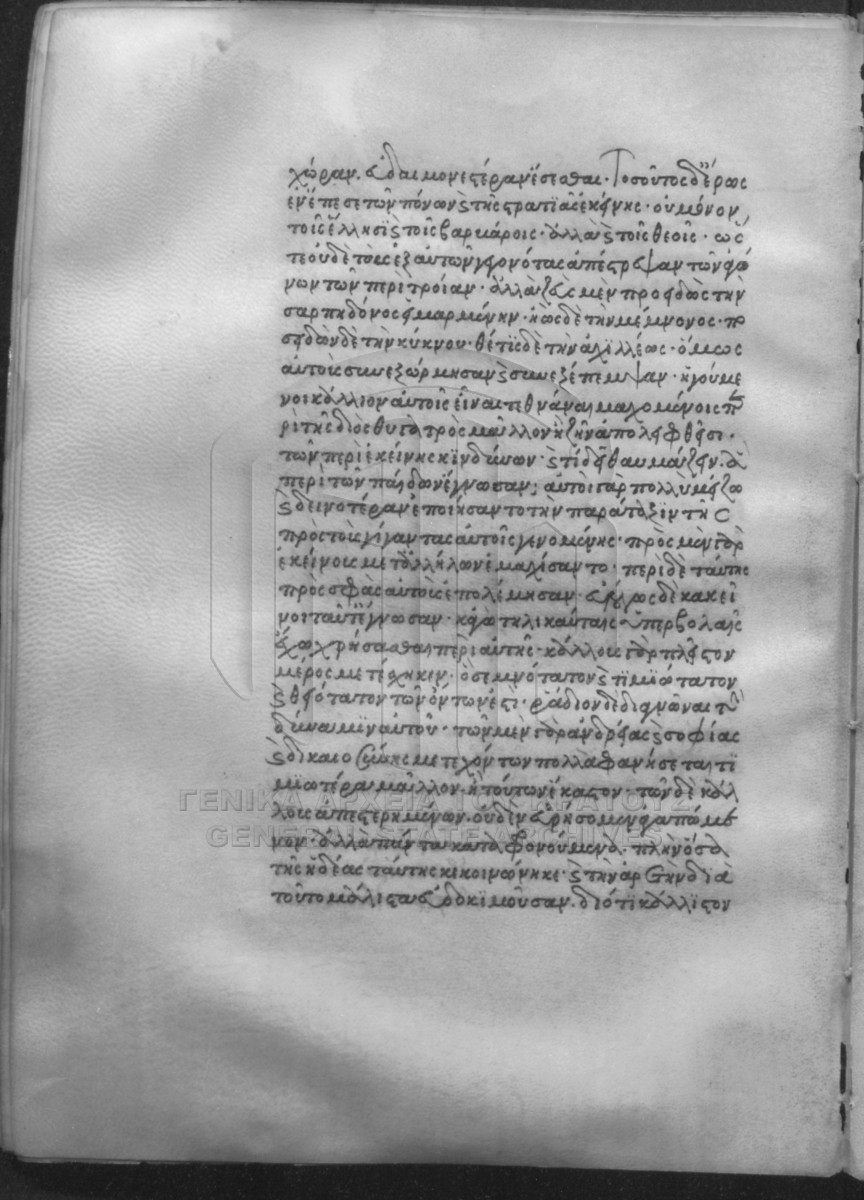 χώραν, εὐδαιμονεστέραν ἔσεσθαι. Τοσοῦτος δ' ἔρως
ἐνέπεσε τῶν πόνων καὶ τῆς στρατιᾶς ἐκείνης· οὐ μόνον
τοῖς ἕλλησι καὶ τοῖς βαρβάροις· ἀλλὰ καὶ τοῖς θεοῖς· ὥς
τε οὐδὲ τοὺς ἐξ αὑτῶν γεγονότας ἀπέστρεψαν τῶν ἀγώ
νων τῶν περὶ τροίαν· ἀλλὰ ζεὺς μὲν προειδὼς τὴν
σαρπηδόνος εἱμαρμένην· ἠὼς δὲ τὴν μέμνονος· πο
σειδῶν δὲ τὴν κύκνου· θέτις δὲ τὴν ἀχιλλέως· ὅμως
αὐτοὺς συνεξώρμησαν καὶ συνεξέπεμψαν· ἡγούμε
νοι κάλλιον αὐτοῖς εἶναι τεθνάναι μαχομένοις πε
ρὶ τῆς διὸς θυγατρὸς μᾶλλον ἢ ζῆν ἀπολειφθεῖσι·
τῶν περὶ ἐκείνης κινδύνων· καὶ τί δεῖ θαυμάζειν. ἃ
περὶ τῶν παίδων ἔγνωσαν; αὐτοὶ γὰρ πολλῷ μείζω
καὶ δεινοτέραν ἐποιήσαντο τὴν παράταξιν τῆς
πρὸς τοὺς γίγαντας αὐτοῖς γενομένης· πρὸς μὲν γὰρ
ἐκείνους μετ' ἀλλήλων ἐμαχέσαντο· περὶ δὲ ταύτης
πρὸς σφᾶς αὐτοὺς ἐπολέμησαν· εὐλόγως δὲ κἀκεῖ
νοι ταῦτ' ἔγνωσαν· κἀγὼ τηλικαύταις ὑπερβολαῖς
ἔχω χρήσασθαι περὶ αὐτῆς· κάλλους γὰρ πλεῖστον
μέρος μετέσχηκεν· ὃ σεμνότατον καὶ τιμιώτατον
καὶ θειότατον τῶν ὄντων ἐστί· ῥάδιον δὲ διαγνῶναι τὴν
δύναμιν αὐτοῦ· τῶν μὲν γὰρ ἀνδρείας καὶ σοφίας
καὶ δικαιοσύνης μετεχόντων πολλὰ φανήσεται τι
μιώτερα μᾶλλον· ἢ τούτων ἕκαστον· τῶν δὲ κάλ
λους ἀπεστερημένων. οὐδὲν εὑρήσομεν ἀγαπώμε
νον· ἀλλὰ πάντα καταφρονούμενα· πλὴν ὅσα
τῆς ἰδέας ταύτης κεκοινώνηκε· καὶ τὴν ἀρετὴν διὰ
τοῦτο μάλιστα εὐδοκιμοῦσαν. διότι κάλλιστον
ΓΕΝΙΚΑ ΑΡΧΕΙΑ ΤΟΥ ΚΡΑΤΟΥΣ
GENERAL STATE ARCHIVES